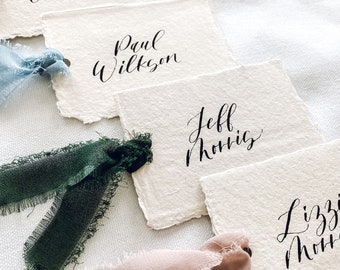 Paul
Wilkson
Jeff
Morris
Lizzi
Morri